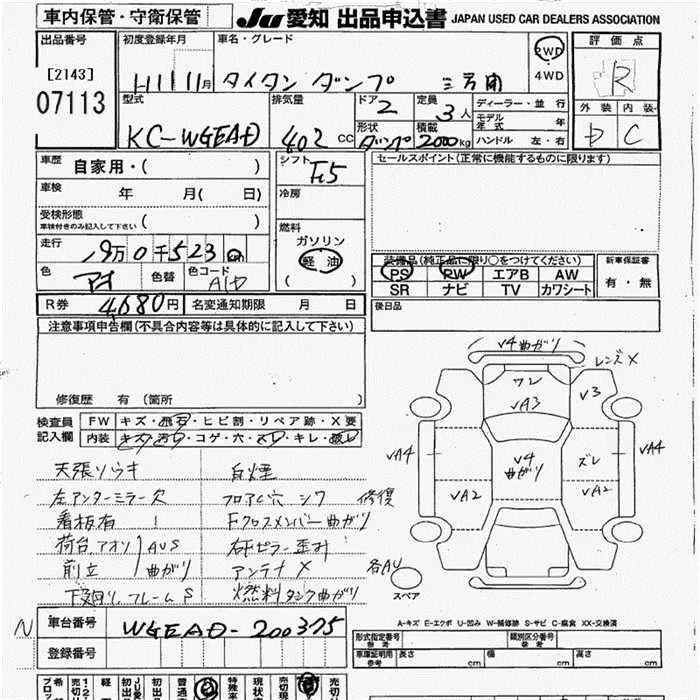 車内保管・守衛保管
JU 愛知 出品申込書 JAPAN USED CAR DEALERS ASSOCIATION
出品番号
[2143]
07113
初度登録年月
H11 11月
車名・グレード
タイタン ダンプ 三方開
2WD
4WD
評価点
R
外装 内装
D C
型式
KC-WGEAD
排気量
402 cc
ドア 2
形状 ダンプ
定員 3人
積載 2000kg
ディーラー・並行
モデル年式 年
ハンドル 左・右
車歴 自家用・( )
車検 年 月( 日)
受検形態
車検付きのみ記入して下さい ( )
走行 19万0千523 km
色 色替 色コード
シフト F5
冷房
燃料
ガソリン
軽油
( )
セールスポイント(正常に機能するものに限ります)
装備品(純正品に限り○をつけてください)
PS RW エアB AW
SR ナビ TV カワシート
新車保証書
有・無
後日品
R券 4,680円 名変通知期限 月 日
注意事項申告欄(不具合内容等は具体的に記入して下さい)
修復歴 有 (箇所 )
検査員記入欄
FW キズ・飛石・ヒビ割・リペア跡・X要
内装 キズ・汚れ・コゲ・穴・スレ・キレ・破レ
天張ソウキ 白煙
左アンダーミラー欠 フロアC穴 シワ 修復
看板有 Fクロスメンバー曲がり
荷台、アオリ AUS 右Fピラー歪み
前立 曲がり アンテナX
下廻り、フレームS 燃料タンク曲がり
V4曲がり
レンズX
ワレ
VA3
V3
VA4
V4
曲がり
ズレ
VA4
VA2
VA2
各AU
スペア
N
車台番号 WGEAD-200375
登録番号
A-キズ E-エクボ U-凹み W-補修跡 S-サビ C-腐食 XX-交換済
形式指定番号 参考
類別区分番号 参考
車庫証明用 参考 長さ cm 幅 cm 高さ cm